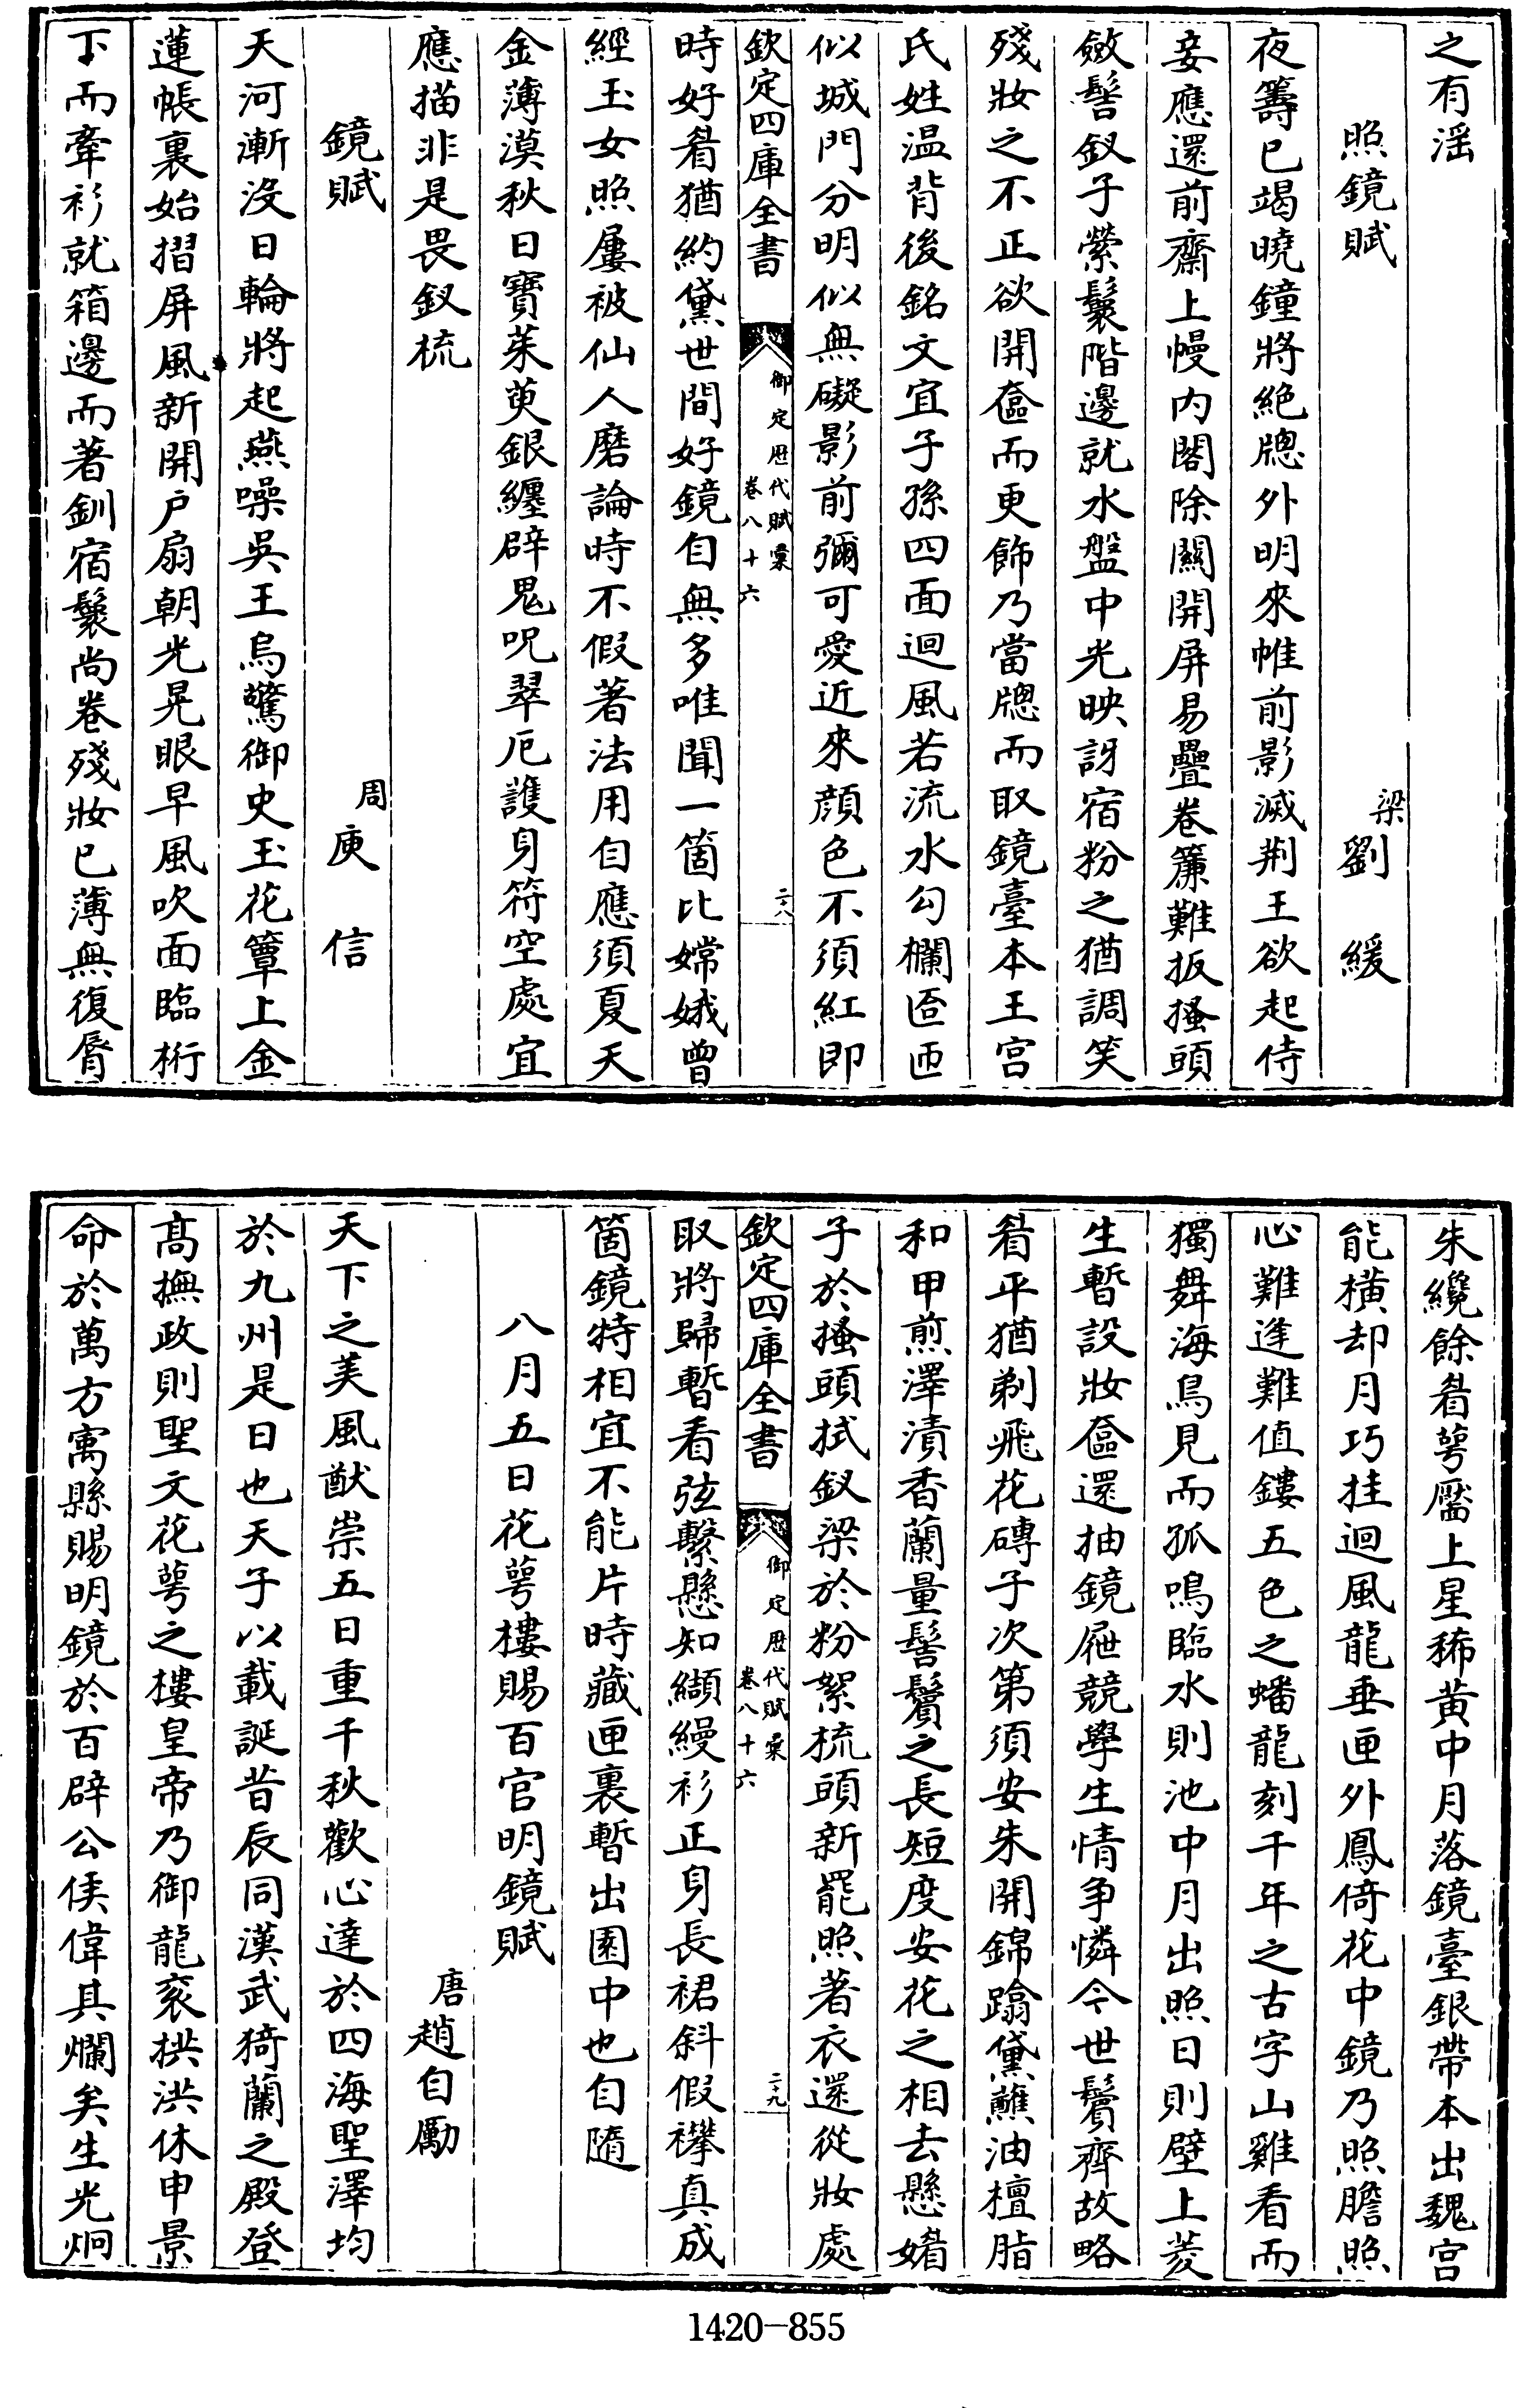 之有滛
照鏡賦
梁劉緩
夜籌已竭曉鐘將絶牕外明來帷前影滅荆王欲起侍
妾應還前齋上幔内閤除關開屏易疊卷簾難扳搔頭
斂髻釵子縈鬟階邊就水盤中光映訝宿粉之猶調笑
殘妝之不正欲開奩而更飾乃當牕而取鏡臺本王宫
氏姓温背後銘文宜子孫四面迴風若流水勾欄匼匝
似城門分明似無礙影前彌可愛近來顔色不須紅即
欽定四庫全書
御定歴代賦彚
卷八十六
二八
時好眉猶約黛世間好鏡自無多唯聞一箇比嫦娥曾
經玉女照屢被仙人磨論時不假著法用自應須夏天
金薄漠秋日寶茱萸銀纏辟鬼呪翠巵護身符空處宜
應描非是畏釵梳
鏡賦
周庾信
天河漸没日輪將起燕噪吳王烏驚御史玉花簟上金
蓮帳裏始摺屏風新開户扇朝光晃眼早風吹面臨桁
下而牽衫就箱邊而著釧宿鬟尚卷殘妝已薄無復脣
朱纔餘眉萼靨上星稀黄中月落鏡臺銀帶本出魏宫
能横却月巧挂迴風龍垂匣外鳳倚花中鏡乃照膽照
心難逢難值鏤五色之蟠龍刻千年之古字山雞看而
獨舞海鳥見而孤鳴臨水則池中月出照日則壁上菱
生暫設妝奩還抽鏡屜競學生情争憐今世鬢齊故略
眉平猶剃飛花磚子次第須安朱開錦蹹黛蘸油檀脂
和甲煎澤漬香蘭量髻鬢之長短度安花之相去懸媚
子於搔頭拭釵梁於粉絮梳頭新罷照著衣還從妝處
欽定四庫全書
御定歴代賦彚
卷八十六
二十九
取將歸暫看弦繫懸知纈縵衫正身長裙斜假襻真成
箇鏡特相宜不能片時藏匣裏暫出園中也自隨
八月五日花萼樓賜百官明鏡賦
唐趙自勵
天下之美風猷崇五日重千秋歡心達於四海聖澤均
於九州是日也天子以載誕昔辰同漢武猗蘭之殿登
髙撫政則聖文花萼之樓皇帝乃御龍衮拱洪休申景
命於萬方㝢縣賜明鏡於百辟公侯偉其爛矣生光炯
1420-855